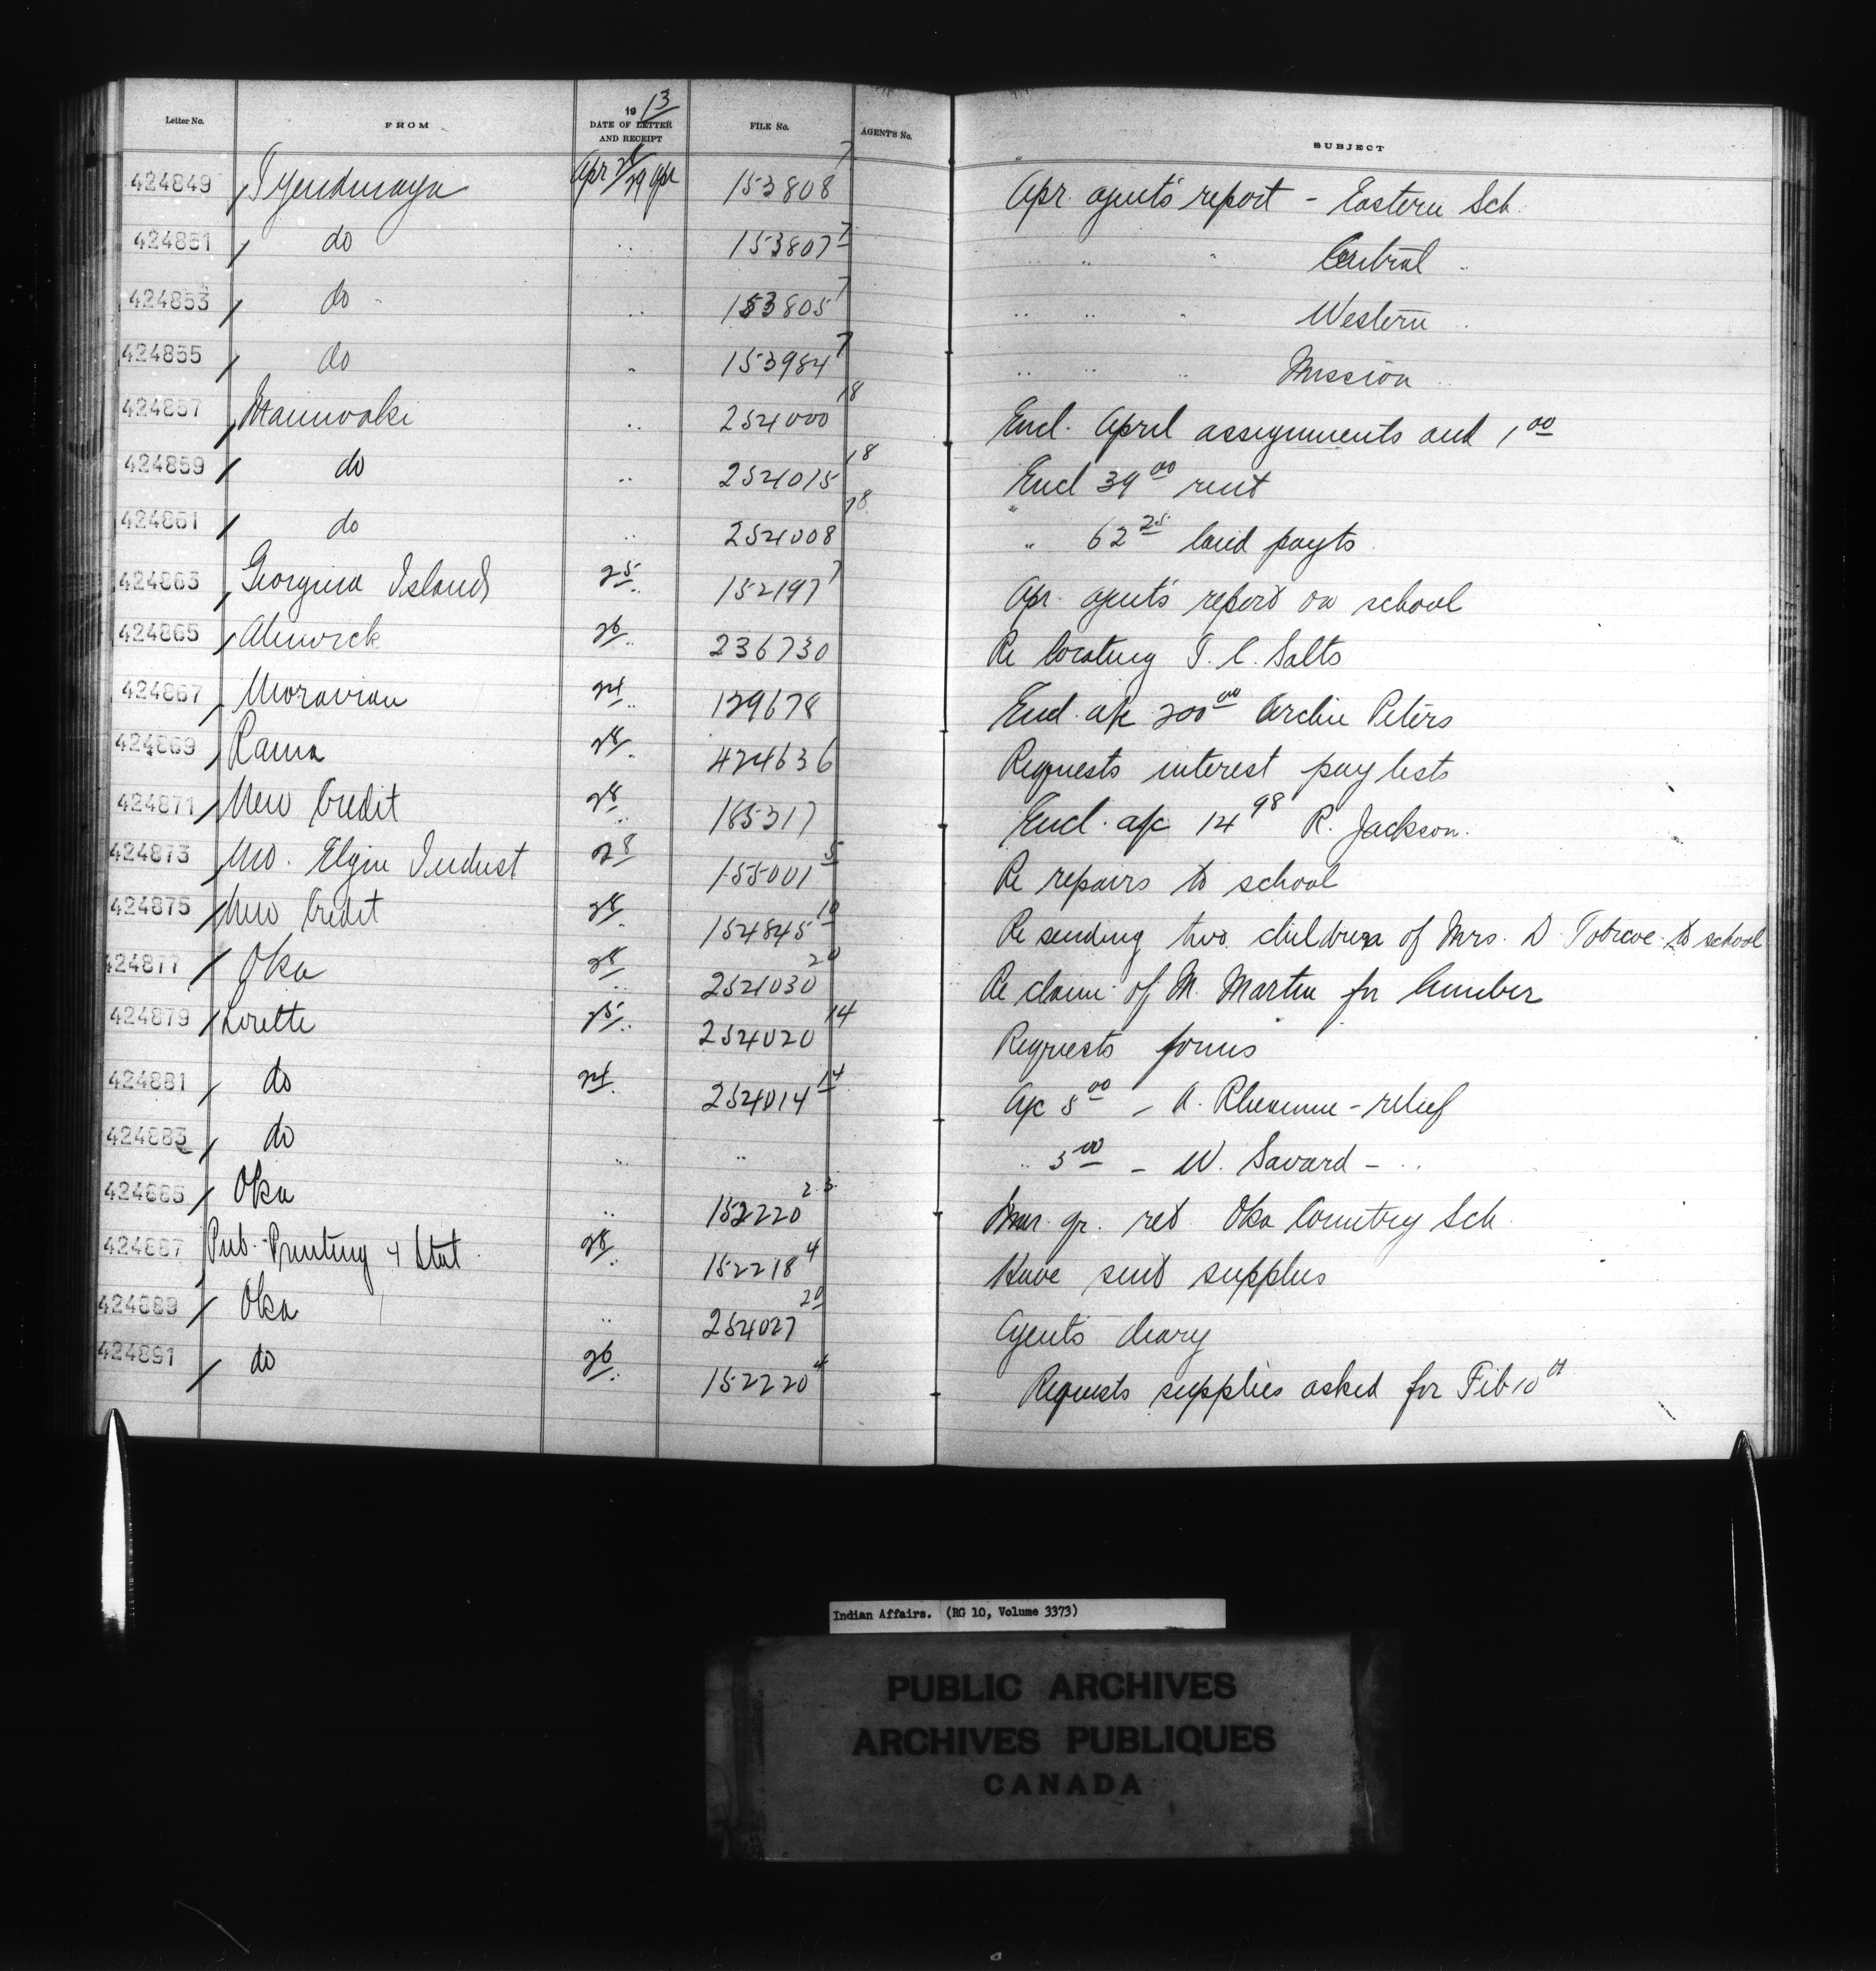 Letter No. FROM 1913 DATE OF LETTER AND RECEIPT FILE No. AGENT'S No. SUBJECT
424849 Tyendinaga Apr 28/29 Apr 153808 7 Apr. agent's report - Eastern Sch.
424851 do " 153807 7 " " " Central "
424853 do " 153805 7 " " " Western "
424855 do " 153984 7 " " " Mission "
424857 Maniwaki " 254000 18 Encl. April assignments and 1 00
424859 do " 254015 18 Encl 39 00 rent
424861 do " 254008 18 " 62 25 land payts
424863 Georgina Island 25 " 152197 7 Apr. agent's report on school
424865 Alnwick 26 " 236730 Re locating T. C. Salts
424867 Moravian 24 " 129678 Encl. a/c 200 00 Archie Peters
424869 Rama 28 " 424636 Requests interest pay lists
424871 New Credit 28 " 185317 Encl. a/c 14 98 R. Jackson.
424873 Mt. Elgin Indust 28 155001 5 Re repairs to school
424875 New Credit 28 " 154845 10 Re sending two children of Mrs. D. Tobicoe to school
424877 Oka 28 " 254030 20 Re claim of M. Martin for lumber
424879 Lorette 25 " 254020 14 Requests forms
424881 do 24 " 254014 14 A/c 5 00 - A. - relief
424883 do " " " 5 00 - W. Savard - "
424885 Oka " 152220 2 3 Mar. qr. ret. Oka Country Sch.
424887 Pub. Printing & Stat. 28 " 152218 4 Have sent supplies
424889 Oka " 254027 20 Agent's diary
424891 do 26 " 152220 4 Requests supplies asked for Feb 10th
Indian Affairs. (RG 10, Volume 3373)
PUBLIC ARCHIVES
ARCHIVES PUBLIQUES
CANADA